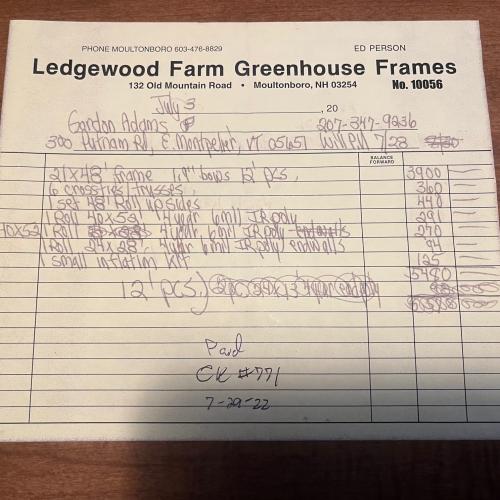 PHONE MOULTONBORO 603-476-8829 ED PERSON
Ledgewood Farm Greenhouse Frames
132 Old Mountain Road • Moultonboro, NH 03254 No. 10056
July 3 , 20
Gordon Adams 207-347-9236
300 Putnam Rd, E. Montpelier, VT 05651 Will PU 7/28
BALANCE FORWARD
21'x48' frame bows 12' pcs, 3900
6 crossties/trusses, 360
1 set 48' Roll up sides 440
1 Roll 40x52' 4 year 6 mil IR poly 291
40x52 1 Roll 4 year 6 mil IR poly 270
1 Roll 24x28' 4 year 6 mil IR poly endwalls 94
1 small inflation kit 125
5480
12' pcs.)
Paid
CK #771
7-29-22